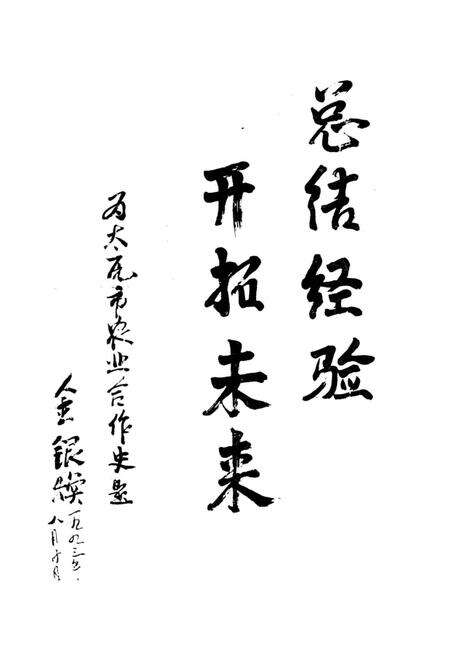 总结经验
开拓未来
为太原市农业合作史题
金银焕
一九九三年
八月十日